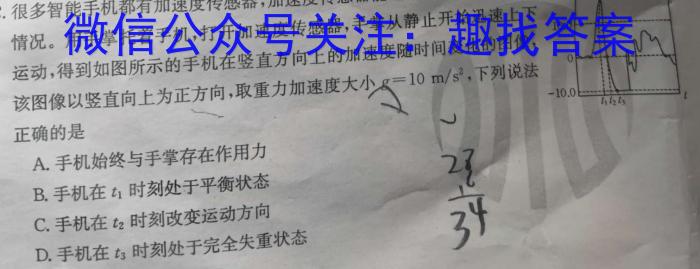 很多智能手机都有加速度传感器,加速度传感器能
情况。
微信公众号关注:趣找答案
从静止开始迅速上下
运动,得到如图所示的手机在竖直方向上的加速度随时间变化的图像,
该图像以竖直向上为正方向,取重力加速度大小 g=10 m/s²,下列说法
正确的是
A. 手机始终与手掌存在作用力
B. 手机在 t₁ 时刻处于平衡状态
C. 手机在 t₂ 时刻改变运动方向
D. 手机在 t₃ 时刻处于完全失重状态
0
-10.0
t₁ t₂ t₃
t
34